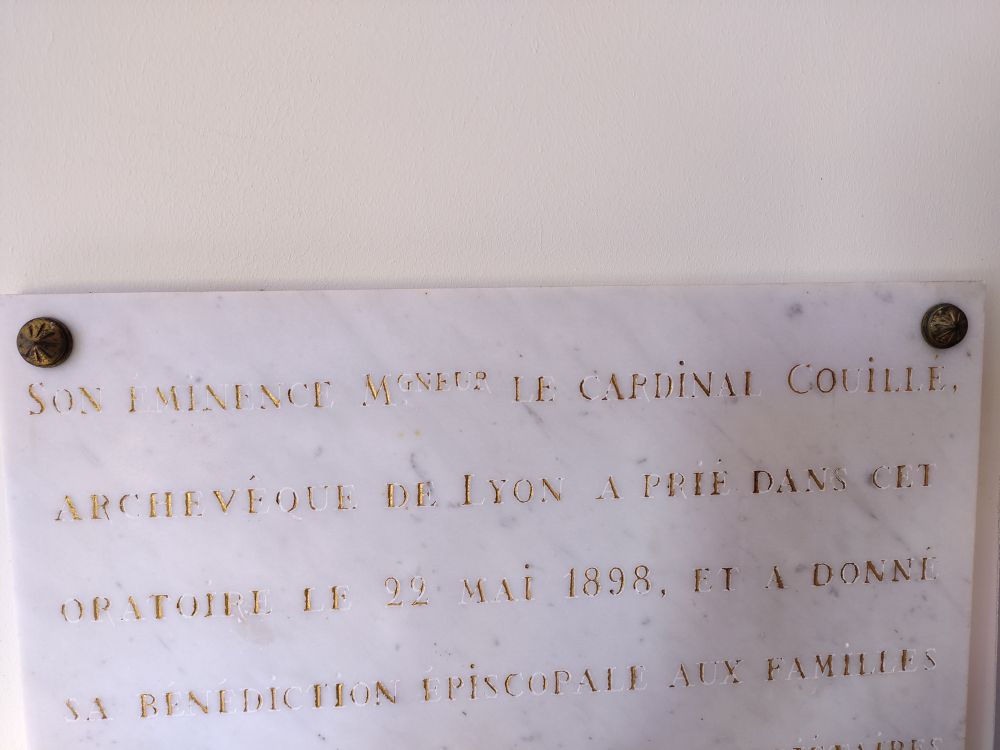 SON ÉMINENCE MGNEUR LE CARDINAL COUILLÉ,
ARCHEVÉQUE DE LYON A PRIÉ DANS CET
ORATOIRE LE 22 MAI 1898, ET A DONNÉ
SA BÉNÉDICTION ÉPISCOPALE AUX FAMILLES